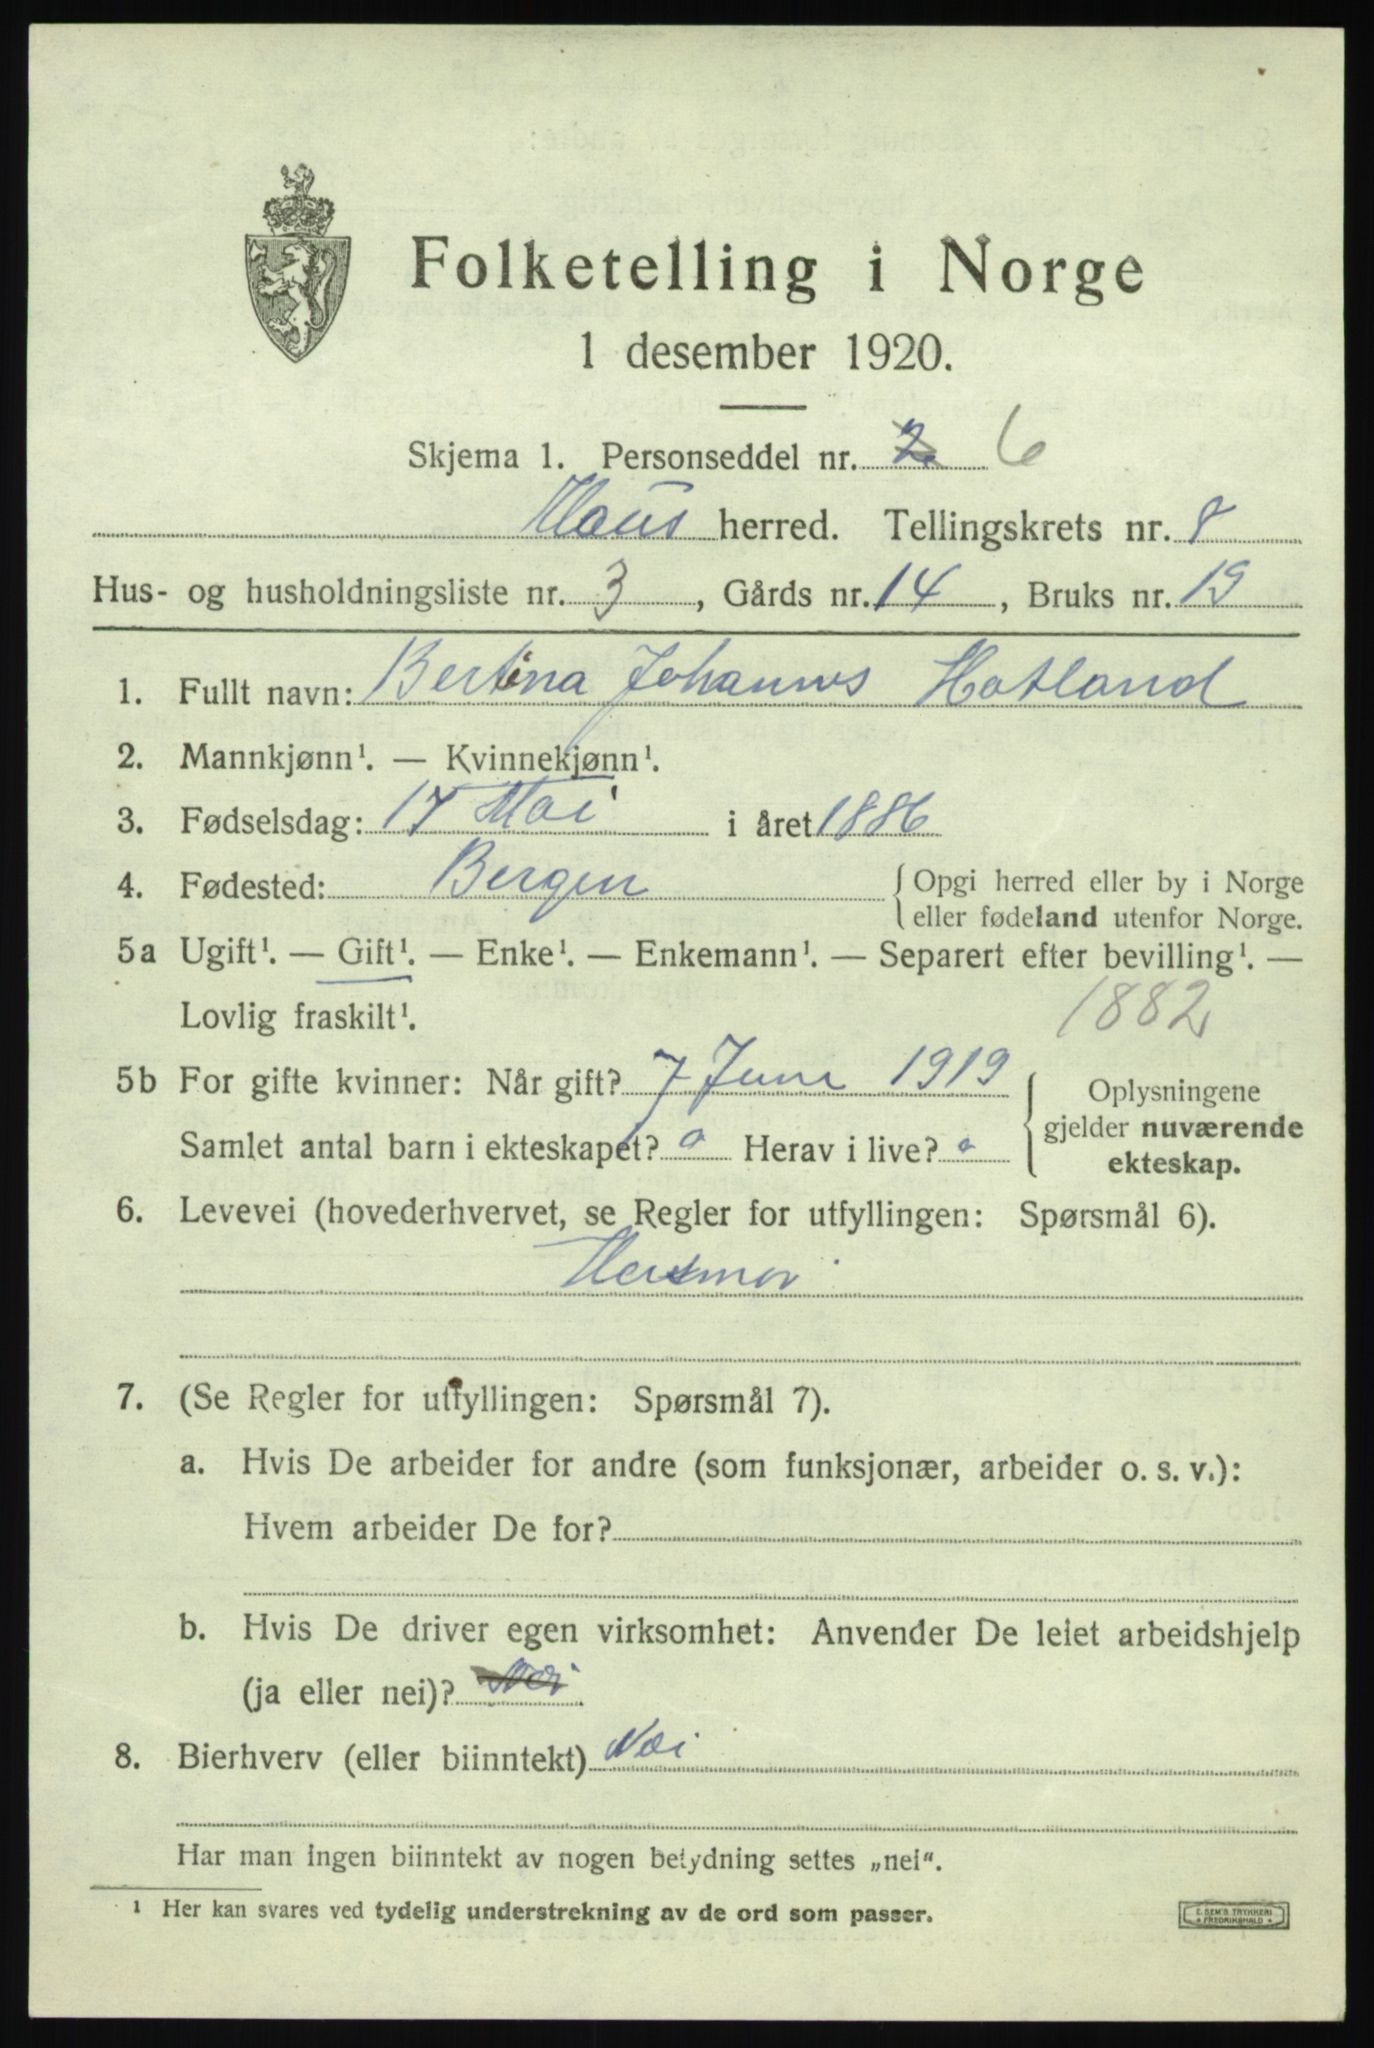 Folketelling i Norge
1 desember 1920.
Skjema 1. Personseddel nr. 2 6
Haus herred. Tellingskrets nr. 8
Hus- og husholdningsliste nr. 3, Gårds nr. 14, Bruks nr. 19
1. Fullt navn: Bertina Johannes Hatland
2. Mannkjønn¹. — Kvinnekjønn¹.
3. Fødselsdag: 17 Mai i året 1886
4. Fødested: Bergen { Opgi herred eller by i Norge
eller fødeland utenfor Norge.
5a Ugift¹. — Gift¹. — Enke¹. — Enkemann¹. — Separert efter bevilling¹. —
Lovlig fraskilt¹. 1882
5b For gifte kvinner: Når gift? 7 Juni 1919
Samlet antal barn i ekteskapet? 0 Herav i live? 0
{ Oplysningene
gjelder nuværende
ekteskap.
6. Levevei (hovederhvervet, se Regler for utfyllingen: Spørsmål 6).
Husmor
7. (Se Regler for utfyllingen: Spørsmål 7).
a. Hvis De arbeider for andre (som funksjonær, arbeider o. s. v.):
Hvem arbeider De for?
b. Hvis De driver egen virksomhet: Anvender De leiet arbeidshjelp
(ja eller nei)? Nei
8. Bierhverv (eller biinntekt) Nei
Har man ingen biinntekt av nogen betydning settes „nei“.
¹ Her kan svares ved tydelig understrekning av de ord som passer.
E. SEM'S TRYKKERI
FREDRIKSHALD